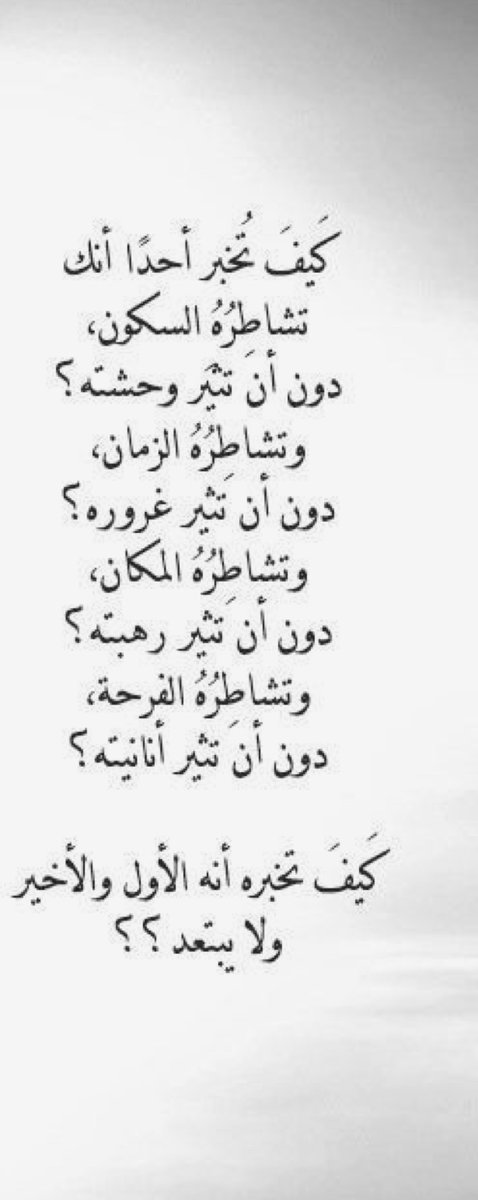 كَيفَ تُخبر أحدًا أنك
تشاطِرُهُ السكون،
دون أن تثيَر وحشته؟
وتشاطِرُهُ الزمان،
دون أن تثير غروره؟
وتشاطِرُهُ المكان،
دون أن تثير رهبته؟
وتشاطِرُهُ الفرحة،
دون أن تثير أنانيته؟
كَيفَ تخبره أنه الأول والأخير
ولا يبتعد؟؟